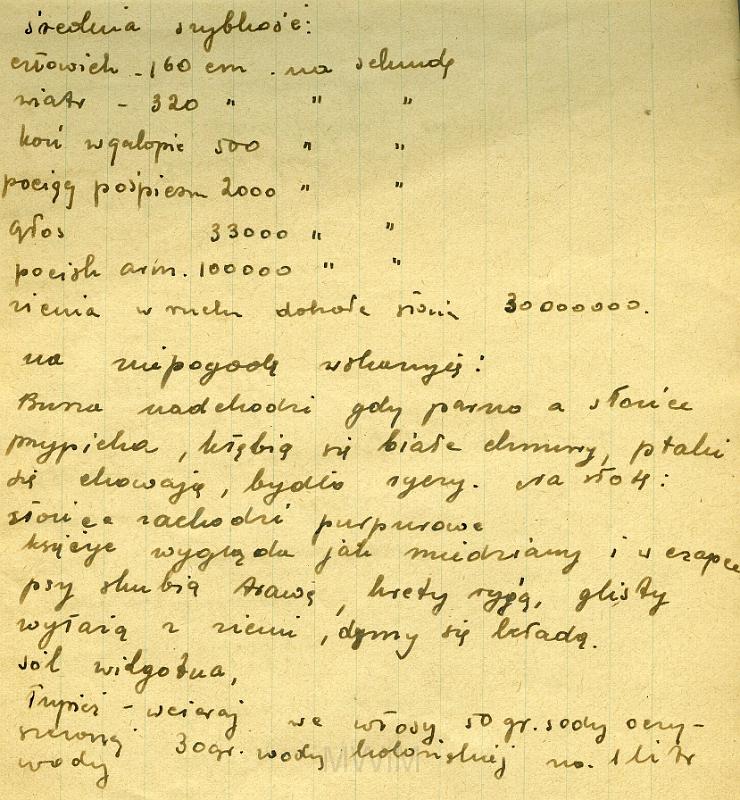 średnia szybkość:
człowiek - 160 cm. na sekundę
wiatr - 320 " " "
koń w galopie 500 " "
pociąg pośpiesn 2000 " "
głos 33000 " "
pocisk arm. 100000 " "
ziemia w ruchu dokoła słońc 30000000.
na niepogodę wskazuję:
Burza nadchodzi gdy parno a słońce
przypieka, kłębią się białe chmury, ptaki
się chowają, bydło ryczy. Na słotę:
słońce zachodzi purpurowe
księżyc wygląda jak miedziany i w czapce
psy skubią trawę, krety ryją, glisty
wyłażą z ziemi, dymy się kładą.
sól wilgotna,
Łupież - wcieraj we włosy 50 gr. sody oczy-
szczonej 30 gr. wody kolońskiej na 1 litr
wody
MWM